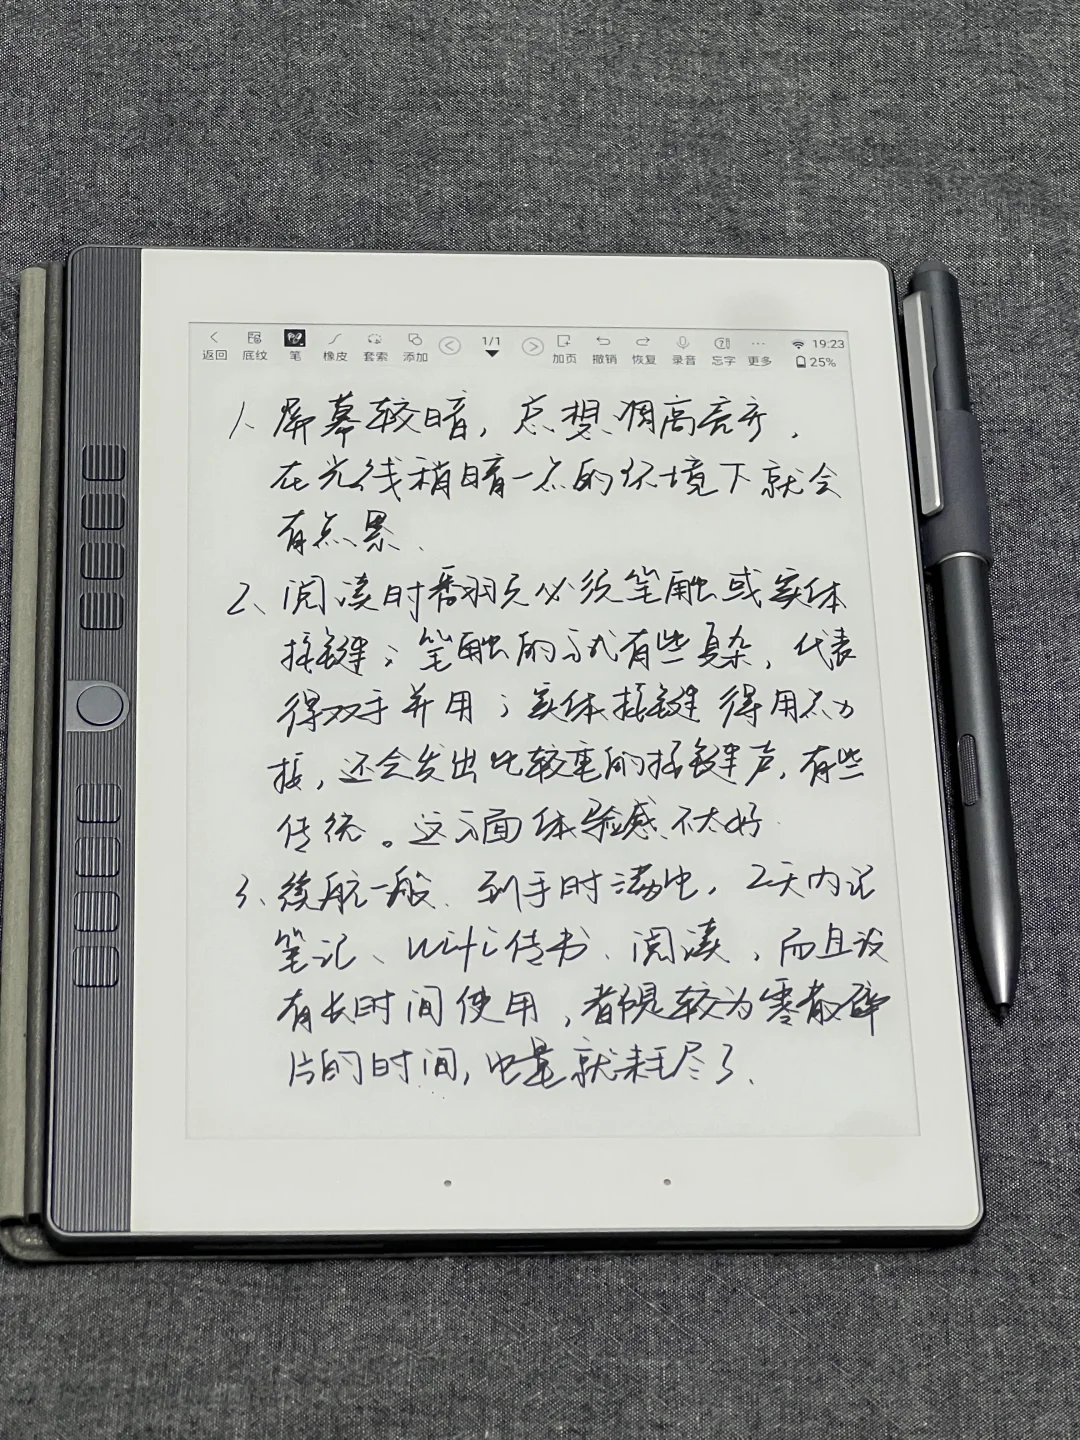 返回 底纹 笔 橡皮 套索 添加 1/1 加页 撤销 恢复 录音 忘字 更多 19:23 25%
1、屏幕较暗，总想调高亮度，
在光线稍暗一点的环境下就会
有点累、
2、阅读时翻页必须笔触或实体
按键；笔触的话有些复杂，代表
得双手并用；实体按键得用力
按，还会发出比较重的按键声，有些
传统。这方面体验感不太好
3、续航一般、到手时满电，2天内记
笔记、wifi传书、阅读，而且没
有长时间使用，都是较为零散碎
片的时间，电量就耗尽了、